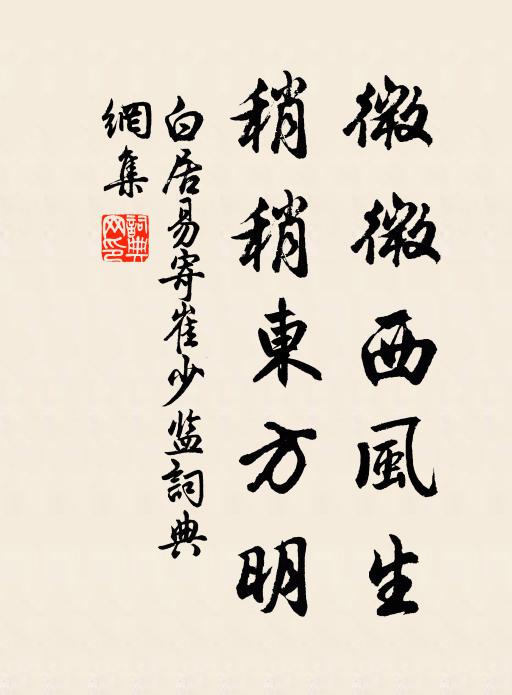 微微西風生
稍稍東方明
白居易寄崔少监詞典
網集
詞典
网印